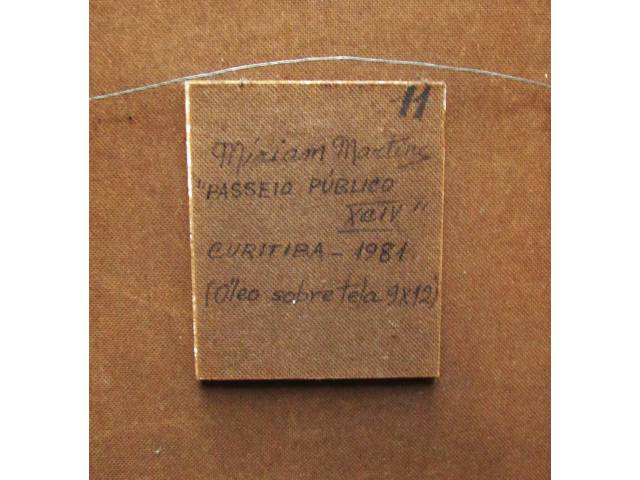 11
Míriam Martins
"PASSEIO PÚBLICO
XCIV"
CURITIBA - 1981
(Óleo sobre tela 9x12)